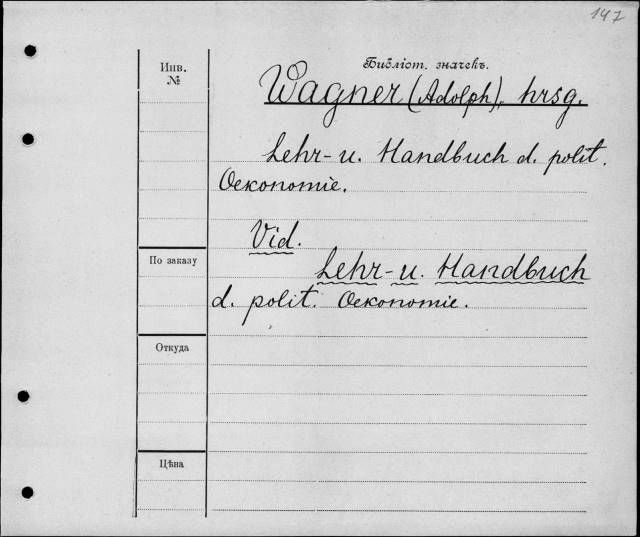 147
Инв.
№
Библіот. значекъ.
Wagner (Adolph), hrsg.
Lehr- u. Handbuch d. polit.
Oekonomie.
Vid.
По заказу
Lehr- u. Handbuch
d. polit. Oekonomie.
Откуда
Цѣна